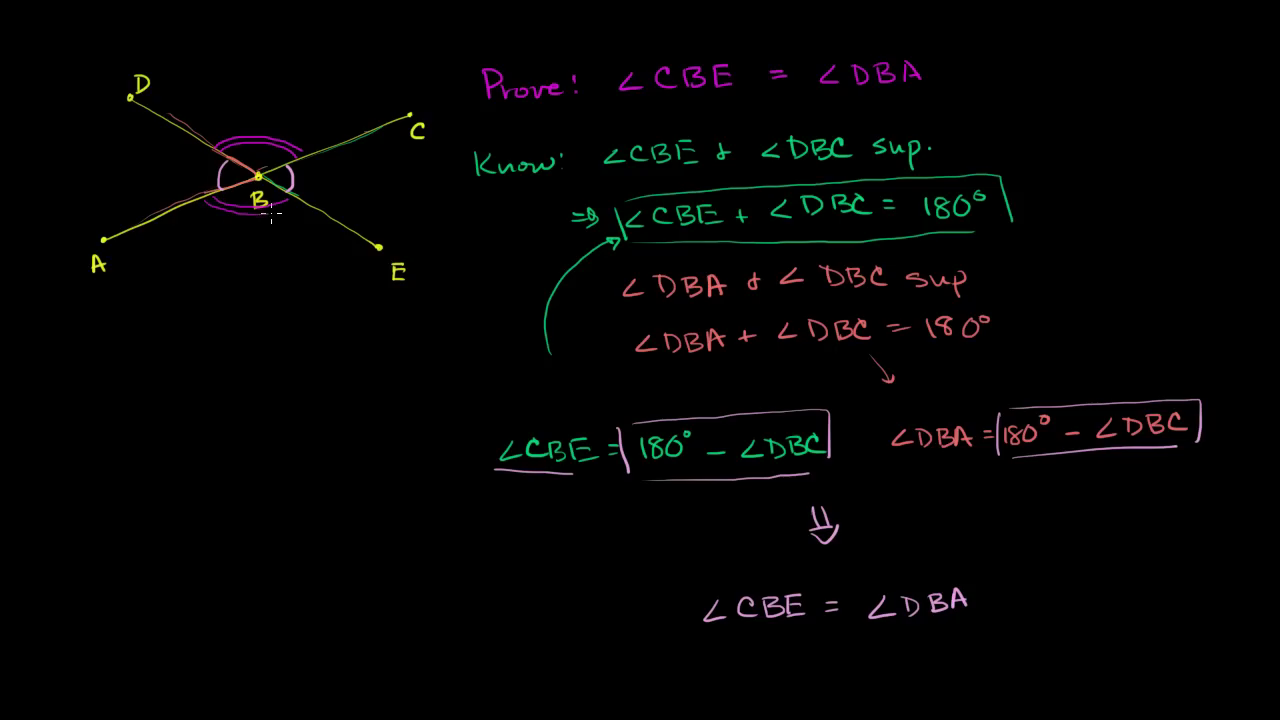 Prove: ∠CBE = ∠DBA
D
C
B
A
E
Know: ∠CBE & ∠DBC sup.
⇒ ∠CBE + ∠DBC = 180°
∠DBA & ∠DBC sup
∠DBA + ∠DBC = 180°
∠CBE = 180° - ∠DBC
∠DBA = 180° - ∠DBC
⇓
∠CBE = ∠DBA